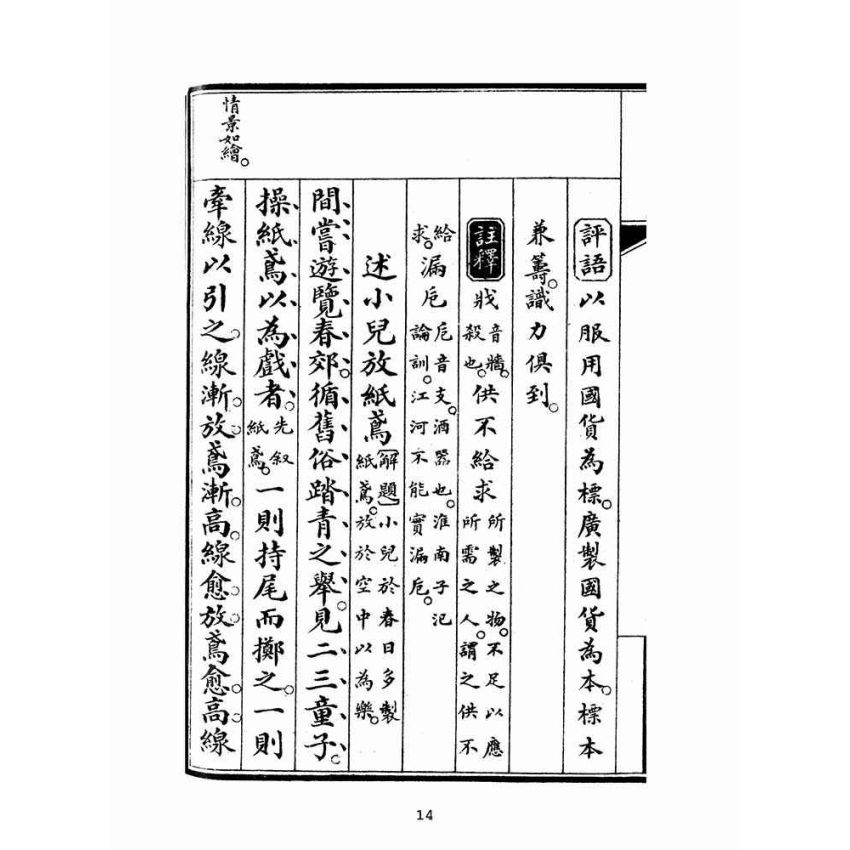 評語 以服用國貨為標。廣製國貨為本。標本
兼籌。識力俱到。
註釋 戕音牆。殺也。供不給求所製之物。不足以應所需之人。謂之供不
給求。漏卮卮音支。酒器也。淮南子氾論訓。江河不能實漏卮。
述小兒放紙鳶〔解題〕小兒於春日多製紙鳶。放於空中以為樂。
間嘗遊覽春郊。循舊俗踏青之舉。見二三童子。
操紙鳶以為戲者。先叙紙鳶。一則持尾而擲之。一則
牽線以引之。線漸放。鳶漸高。線愈放。鳶愈高。線
情景如繪。
14